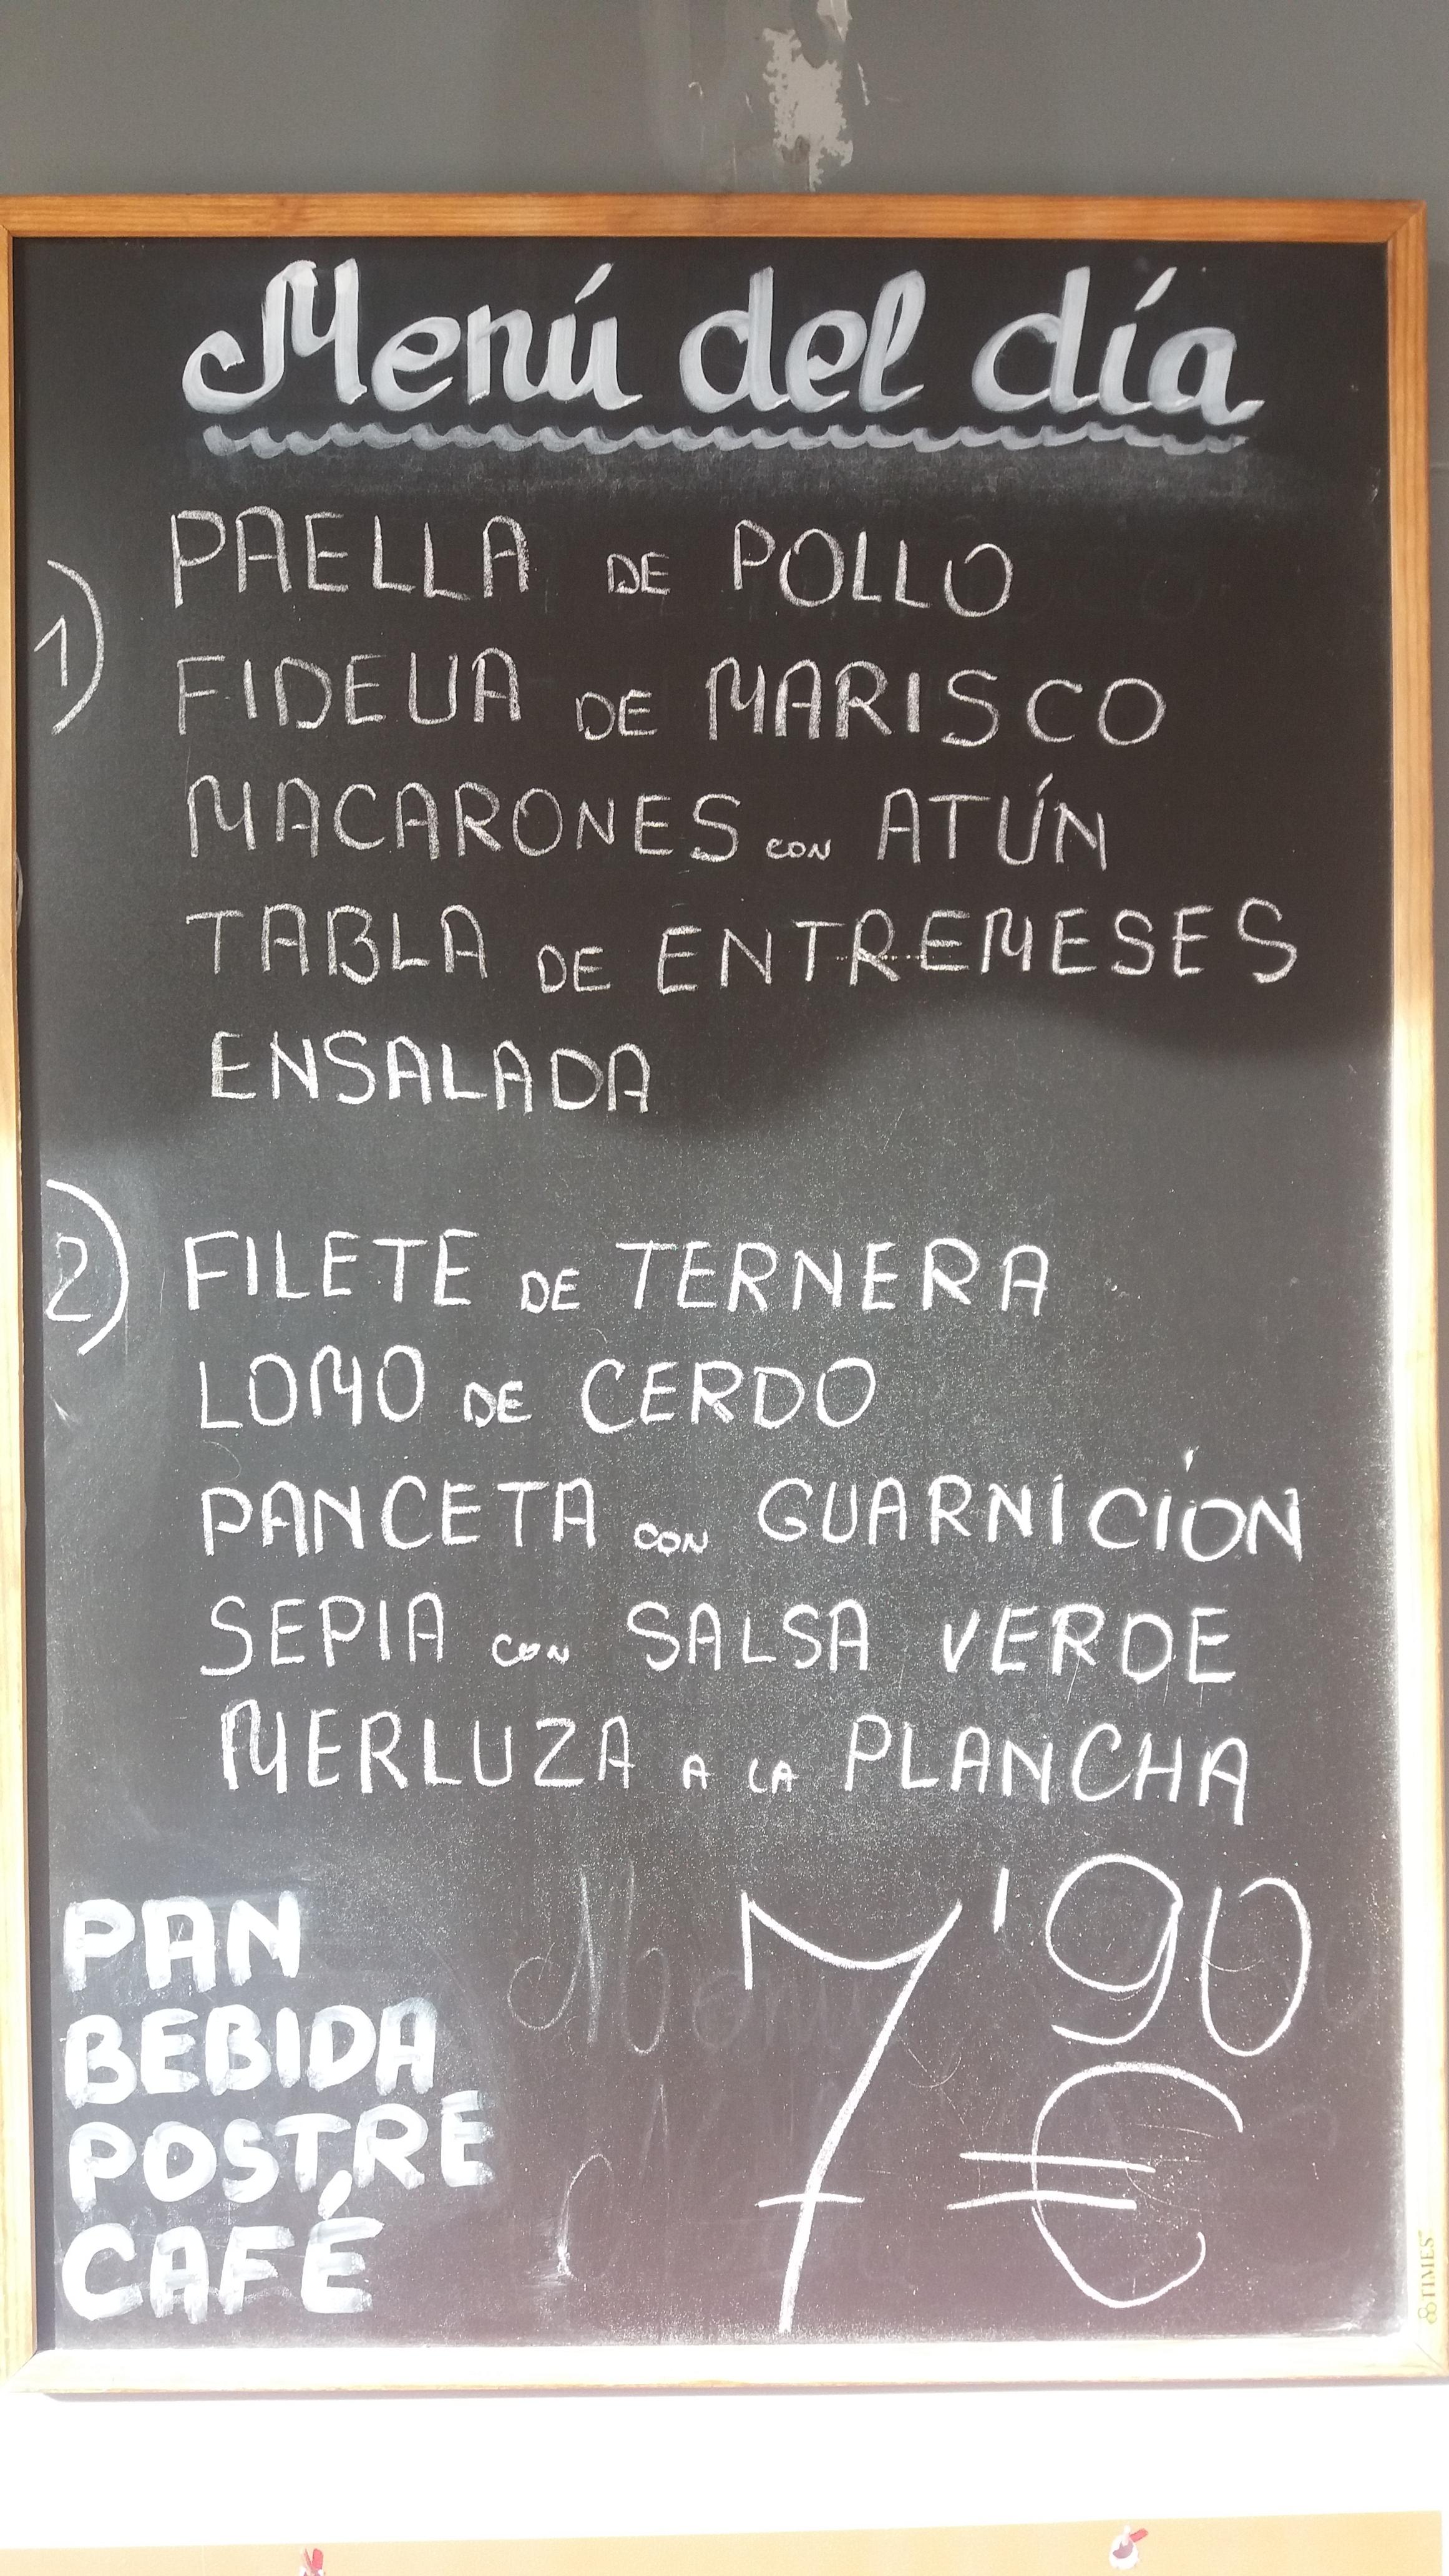 Menú del día
1)
PAELLA DE POLLO
FIDEUA DE MARISCO
MACARONES CON ATÚN
TABLA DE ENTREMESES
ENSALADA
2)
FILETE DE TERNERA
LOMO DE CERDO
PANCETA CON GUARNICIÓN
SEPIA CON SALSA VERDE
MERLUZA A LA PLANCHA
PAN
BEBIDA
POSTRE
CAFÉ
7'90
€
TIMES